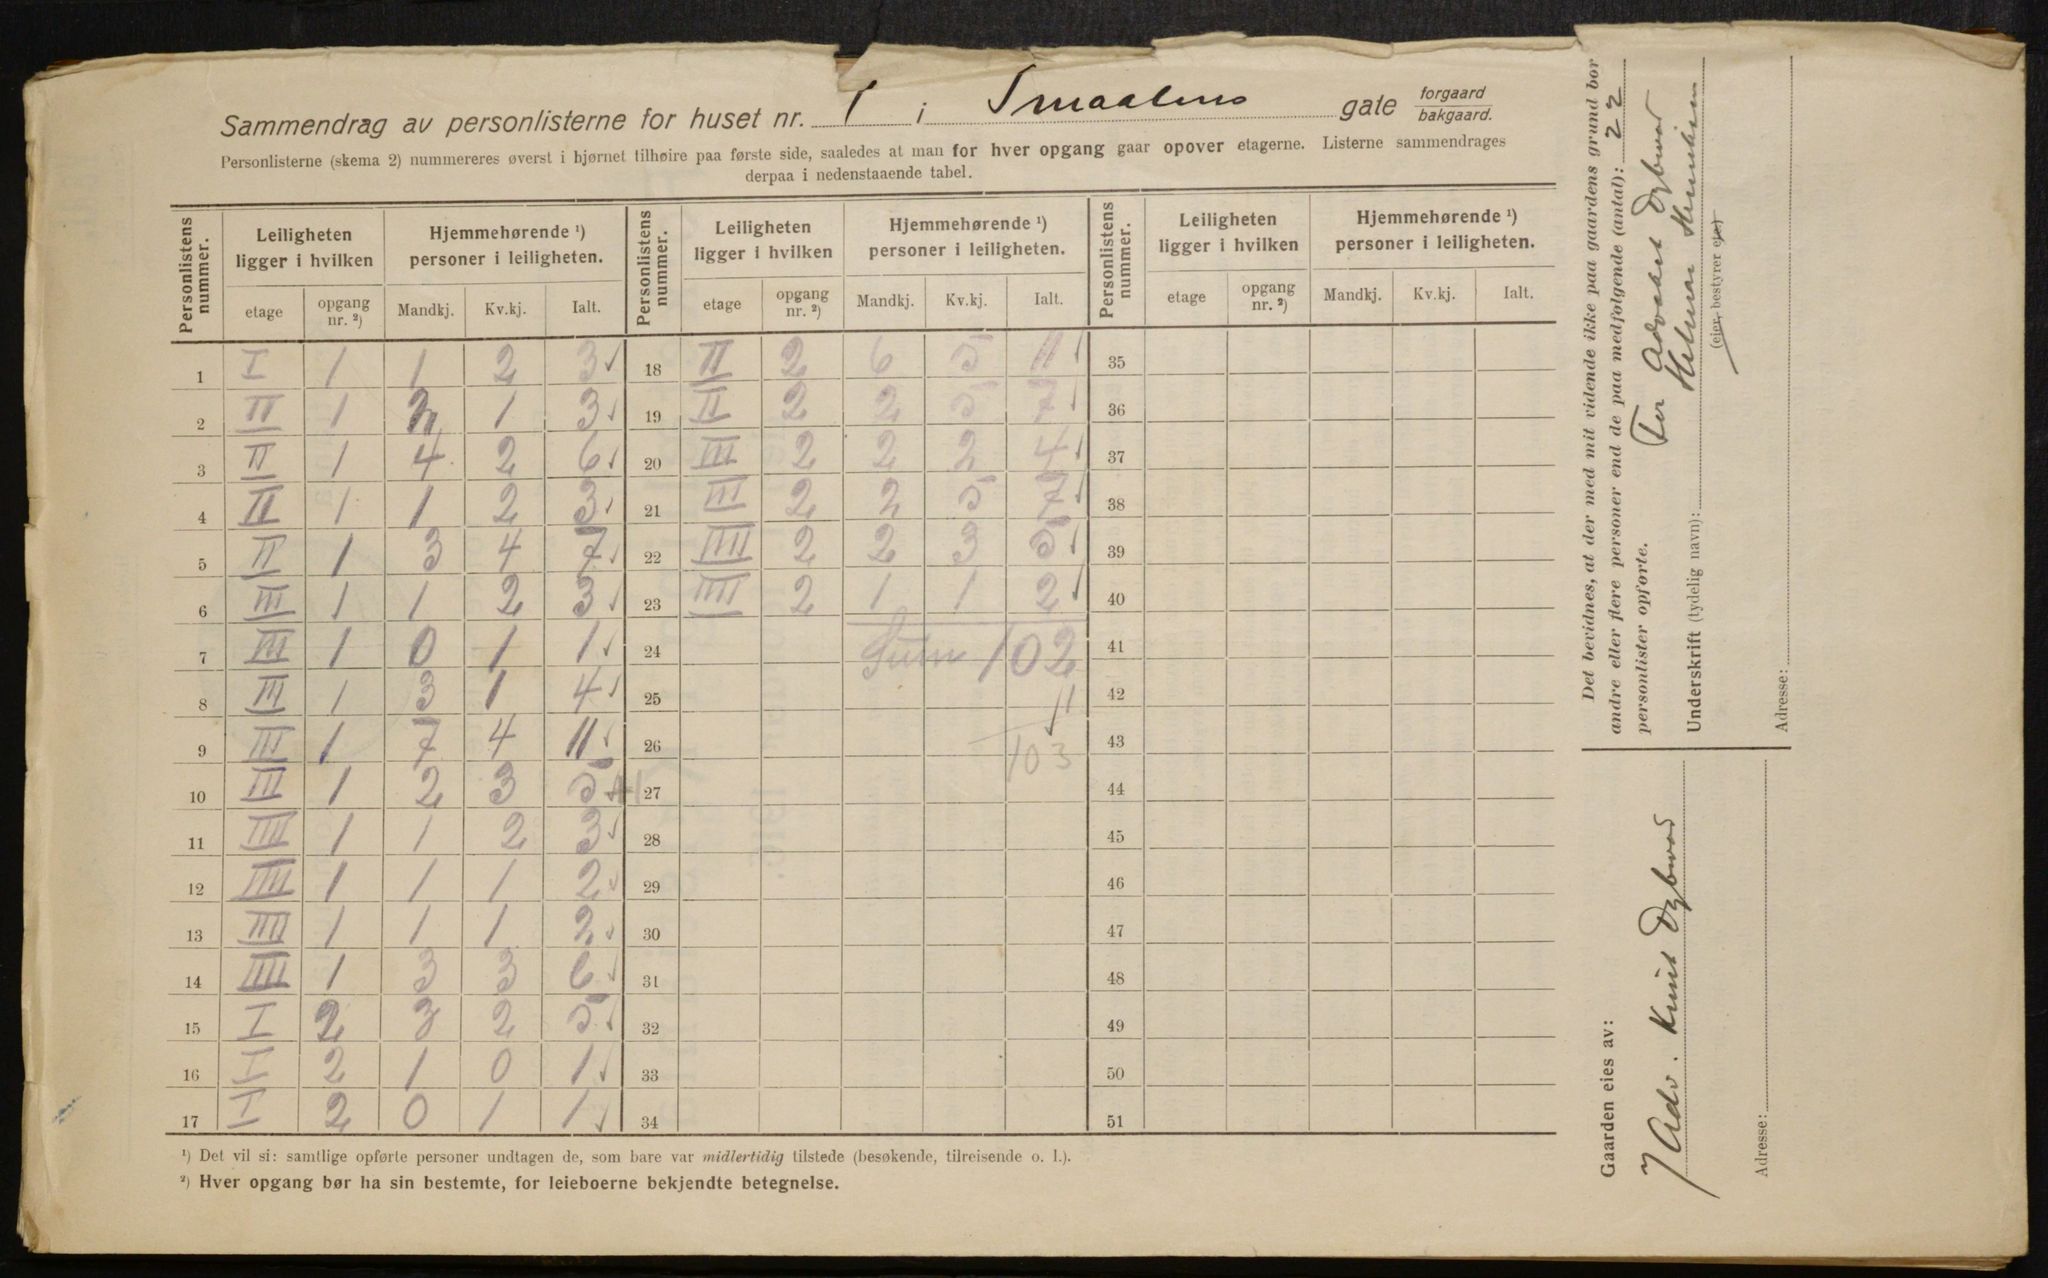 Sammendrag av personlisterne for huset nr. 1 i Smaalens gate forgaard
bakgaard.
Personlisterne (skema 2) nummereres øverst i hjørnet tilhøire paa første side, saaledes at man for hver opgang gaar opover etagerne. Listerne sammendrages
derpaa i nedenstaaende tabel.
Personlistens nummer. Leiligheten ligger i hvilken Hjemmehørende ¹) personer i leiligheten. Personlistens nummer. Leiligheten ligger i hvilken Hjemmehørende ¹) personer i leiligheten. Personlistens nummer. Leiligheten ligger i hvilken Hjemmehørende ¹) personer i leiligheten.
etage opgang nr. ²) Mandkj. Kv.kj. Ialt. etage opgang nr. ²) Mandkj. Kv.kj. Ialt. etage opgang nr. ²) Mandkj. Kv.kj. Ialt.
1 I 1 1 2 3 ✓ 18 II 2 6 5 11 ✓ 35
2 II 1 2 1 3 ✓ 19 II 2 2 5 7 ✓ 36
3 II 1 4 2 6 ✓ 20 III 2 2 2 4 ✓ 37
4 II 1 1 2 3 ✓ 21 III 2 2 5 7 ✓ 38
5 II 1 3 4 7 ✓ 22 IIII 2 2 3 5 ✓ 39
6 III 1 1 2 3 ✓ 23 IIII 2 1 1 2 ✓ 40
7 III 1 0 1 1 ✓ 24 Sum 102 41
8 III 1 3 1 4 ✓ 25 42
9 III 1 7 4 11 ✓ 26 103 43
10 III 1 2 3 5 ✓ 27 44
11 III 1 1 2 3 ✓ 28 45
12 IIII 1 1 1 2 ✓ 29 46
13 IIII 1 1 1 2 ✓ 30 47
14 IIII 1 3 3 6 ✓ 31 48
15 I 2 3 2 5 ✓ 32 49
16 I 2 1 0 1 ✓ 33 50
17 I 2 0 1 1 ✓ 34 51
¹) Det vil si: samtlige opførte personer undtagen de, som bare var midlertidig tilstede (besøkende, tilreisende o. l.).
²) Hver opgang bør ha sin bestemte, for leieboerne bekjendte betegnelse.
Det bevidnes, at der med mit vidende ikke paa gaardens grund bor
andre eller flere personer end de paa medfølgende (antal): 22
personlister opførte.
For Advokat Dybwad
Underskrift (tydelig navn):
(eier, bestyrer etc.)
Adresse:
Gaarden eies av:
Adv. Knut Dybwad
Adresse: